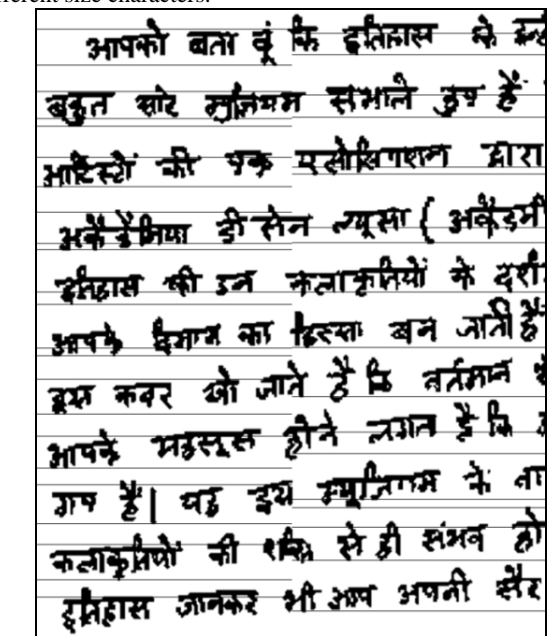 fferent size characters.
आपको बता दूं कि इतिहास के
बहुत सारे म्यूजियम संभाले हुए हैं
आर्टिस्टों की एक एसोसिएशन द्वारा
अकैडेमिया डी सेन ल्यूसा ( अकैडमी
इतिहास की इन कलाकृतियों के
आपके दिमाग का हिस्सा बन जाती हैं
इस कदर खो जाते हैं कि वर्तमान
आपको महसूस होने लगता है कि
गए हैं| यह इस म्यूजियम के
कलाकृतियों की शक्ति से ही संभव हो
इतिहास जानकर भी आप अपनी सैर